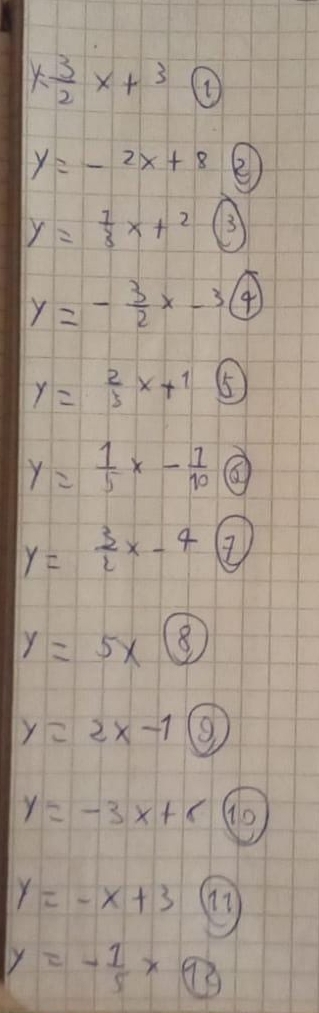 y=3/2 x + 3 (1)
y = - 2x + 8 (2)
y = 1/3 x + 2 (3)
y = - 3/2 x - 3 (4)
y = 2/3 x + 1 (5)
y = 1/5 x - 1/10 (6)
y = 3/2 x - 4 (7)
y = 5x (8)
y = 2x - 1 (9)
y = -3x + (10)
y = -x + 3 (11)
y = - 1/5 x (12)